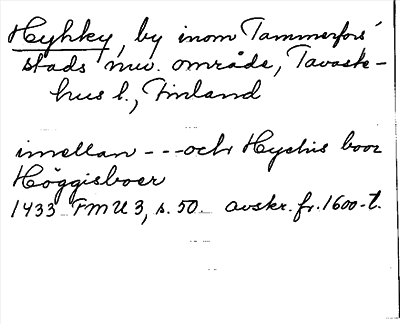 Hyhky, by inom Tammerfors'
stads nuv. område, Tavaste-
hus l., Finland
imellan --- och Hychis boor
Höggisboer
1433 FMU 3, s. 50. avskr. fr. 1600-t.